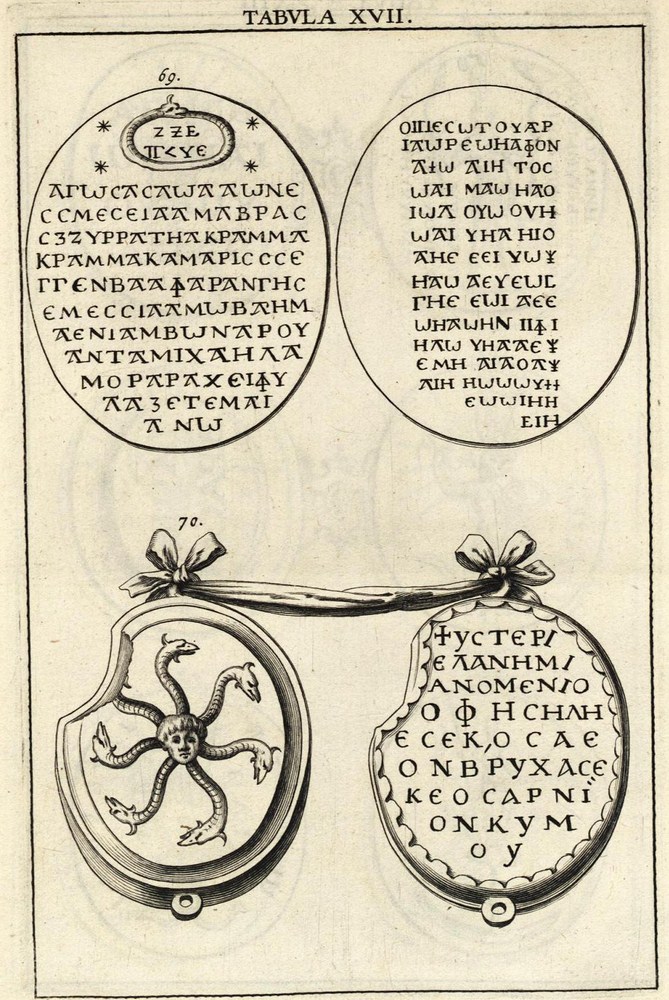 TABVLA XVII.
69.
ΖΖΕ
ΠΚΥΕ
ΑΓѠСΑСΑѠΑΑѠΝΕ
ССΜΕСΕΙΑΑΜΑΒΡΑС
С3ΖΥΡΡΑΤΗΑΚΡΑΜΜΑ
ΚΡΑΜΜΑΚΑΜΑΡΙСССΕ
ΓΓΕΝΒΑΑΦΑΡΑΝΓΗС
ΕΜΕССΙΑΑΜѠΒΑΗΜ
ΑΕΝΙΑΜΒѠΝΑΡΟΥ
ΑΝΤΑΜΙΧΑΗΛΑ
ΜΟΡΑΡΑΧΕΙΦΥ
ΑΑ3ΕΤΕΜΑΙ
ΑΝѠ
ΙΑѠΡΕѠΗΑΦΟΝ
ΑΙΗ ΤΟС
ѠΑΙ ΜΑѠ ΗΑΟ
ΙѠΑ ΟΥѠ ΟΥΗ
ѠΑΙ ΥΗΑ ΗΙΟ
ΑΗΕ ΕΕΙ ΥѠΨ
ΗΑѠ
ΓΗΕ ΕѠΙ ΑΕΕ
ѠΗΑѠΗΝ ΠΦΙ
ΗΑѠ ΥΗΑΑΕΨ
ΕΜΗ ΑΙΑΟΛΨ
ΑΙΗ
ΕѠѠΙΗΗ
ΕΙΗ
70.
ΥСΤΕΡΙ
ΕΛΑΝΗΜΙ
ΑΝΟΜΕΝΙΟ
ΟΦΗСΗΛΗ
ΕСΕΚ,ΟСΑΕ
ΟΝΒΡΥΧΑСΕ
ΚΕΟСΑΡΝΙ
ΟΝΚΥΜ
ΟΥ